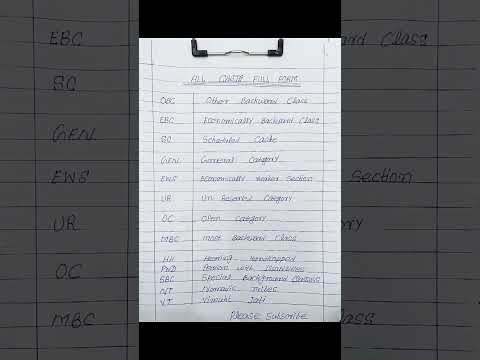 ALL CASTE FULL FORM
OBC Other Backward Class
EBC Economically Backward Class
SC Scheduled Caste
GEN General Category
EWS Economically Weaker Section
UR Un Reserved Category
OC Open Category
MBC Most Backward Class
HH Hearing Handicapped
PWD Person with Disabilities
SBC Special Background Classes
NT Nomadic Tribes
VT Vimukt Jati
Please Subscribe